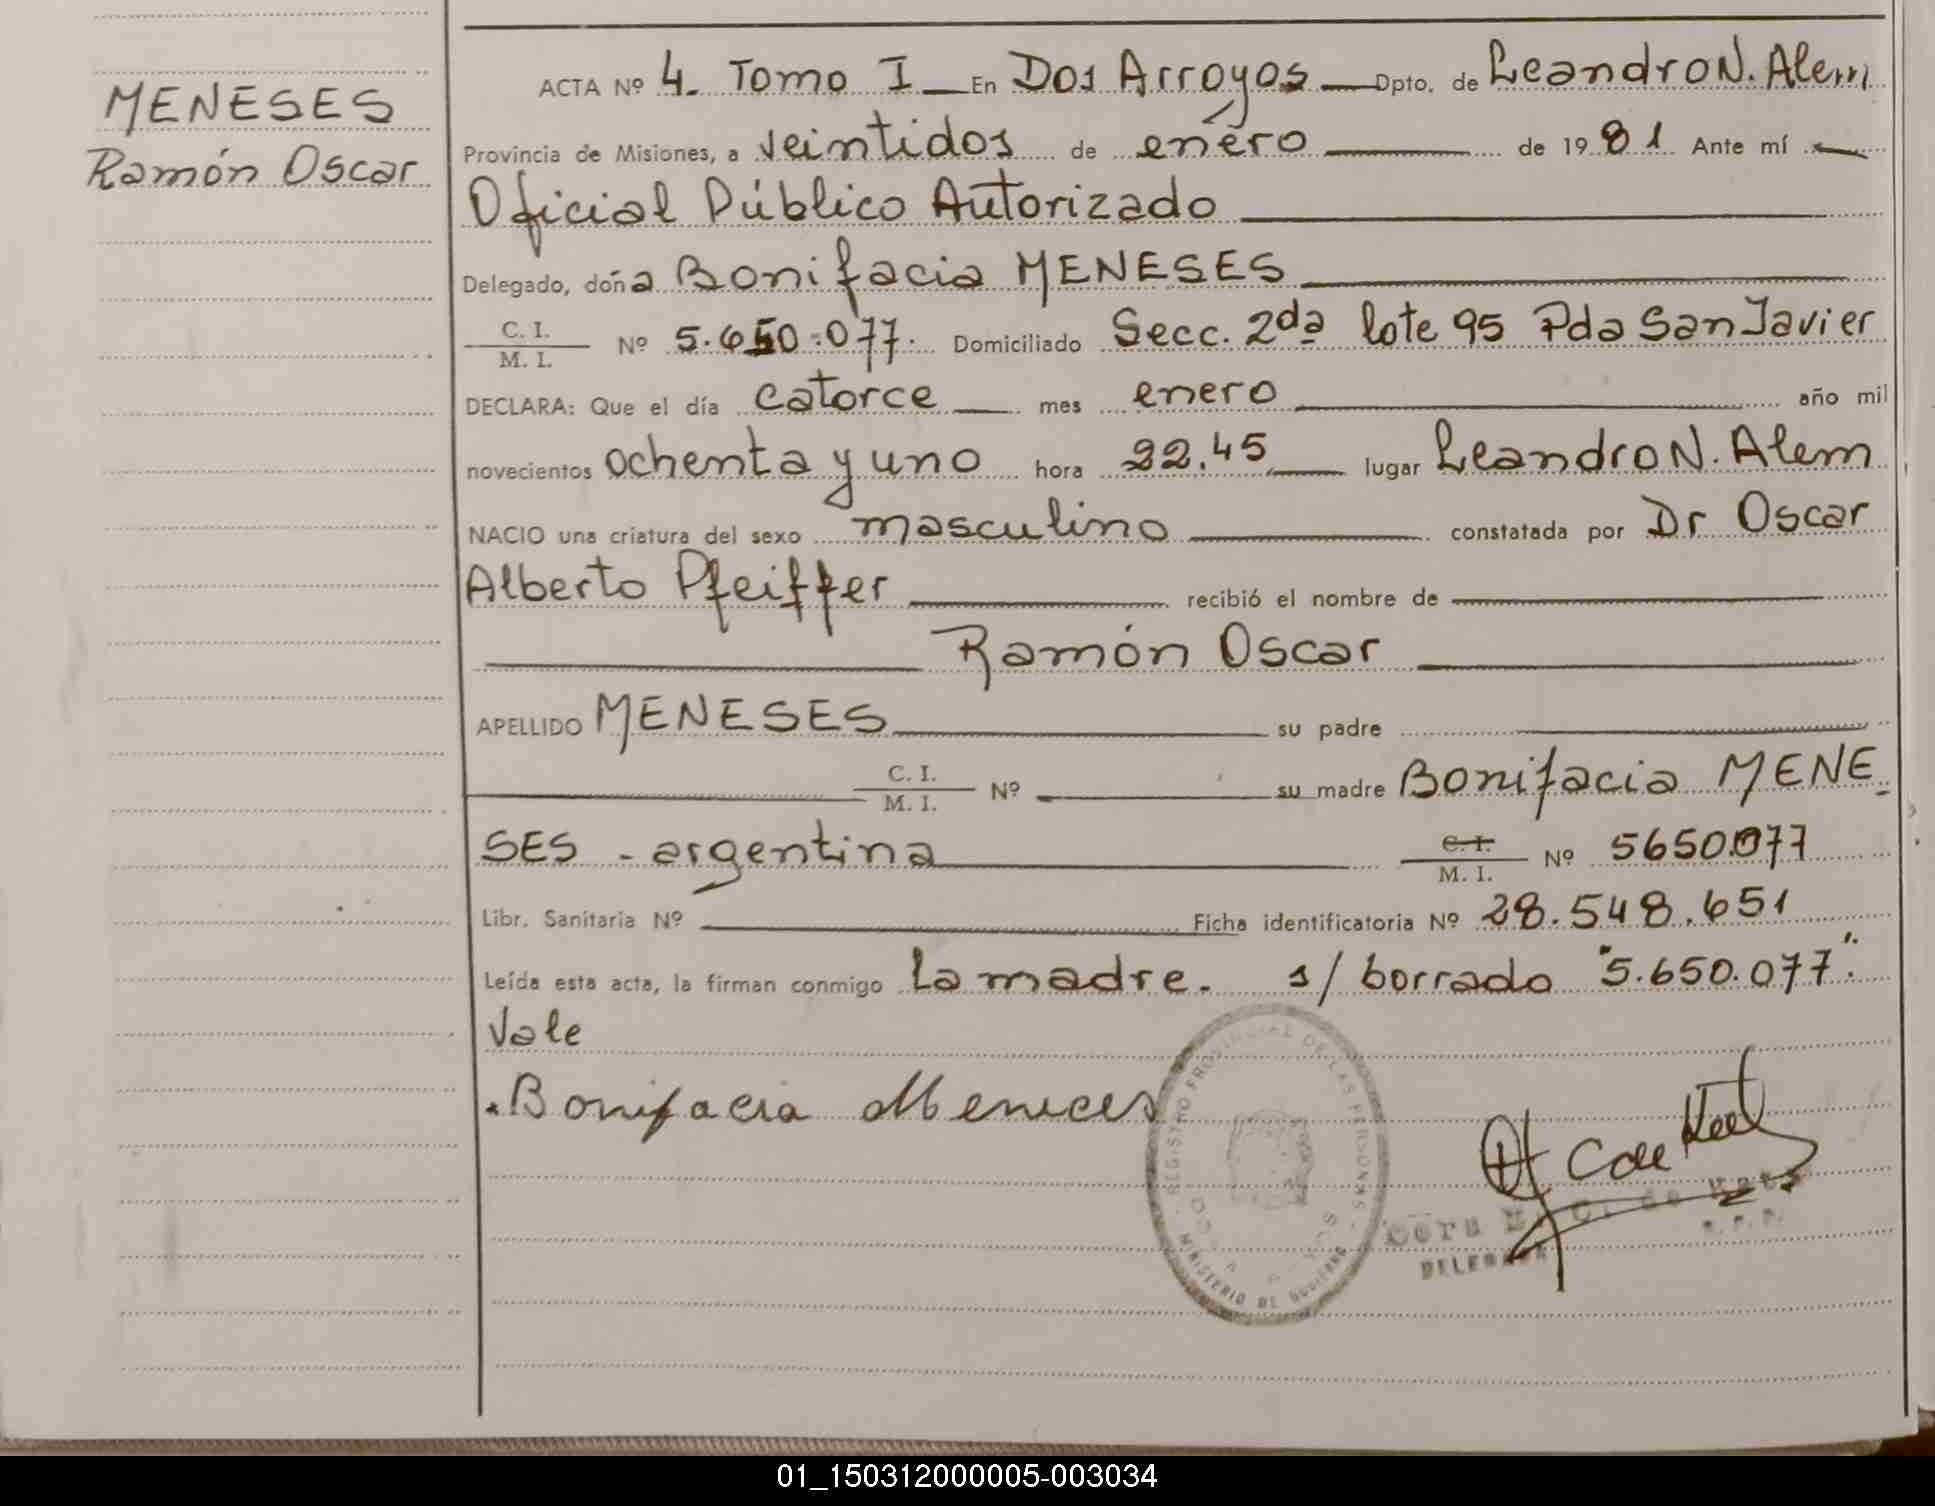 MENESES
Ramón Oscar
ACTA Nº 4. Tomo I En Dos Arroyos Dpto. de Leandro N. Alem
Provincia de Misiones, a veintidos de enero de 1981 Ante mí
Oficial Público Autorizado
Delegado, doña Bonifacia MENESES
C. I.
M. I. Nº 5.650.077. Domiciliado Secc. 2da lote 95 Pda San Javier
DECLARA: Que el día catorce mes enero año mil
novecientos ochenta y uno hora 22.45 lugar Leandro N. Alem
NACIO una criatura del sexo masculino constatada por Dr Oscar
Alberto Pfeiffer recibió el nombre de
Ramón Oscar
APELLIDO MENESES su padre
C. I.
M. I. Nº su madre Bonifacia MENE
SES - argentina C. I.
M. I. Nº 5650.077
Libr. Sanitaria Nº Ficha identificatoria Nº 28.548.651
Leída esta acta, la firman conmigo la madre. s/ borrado "5.650.077".
Vale
Bonifacia Meneces
REGISTRO PROVINCIAL DE LAS PERSONAS
MINISTERIO DE GOBIERNO
DELEGADA
01_150312000005-003034